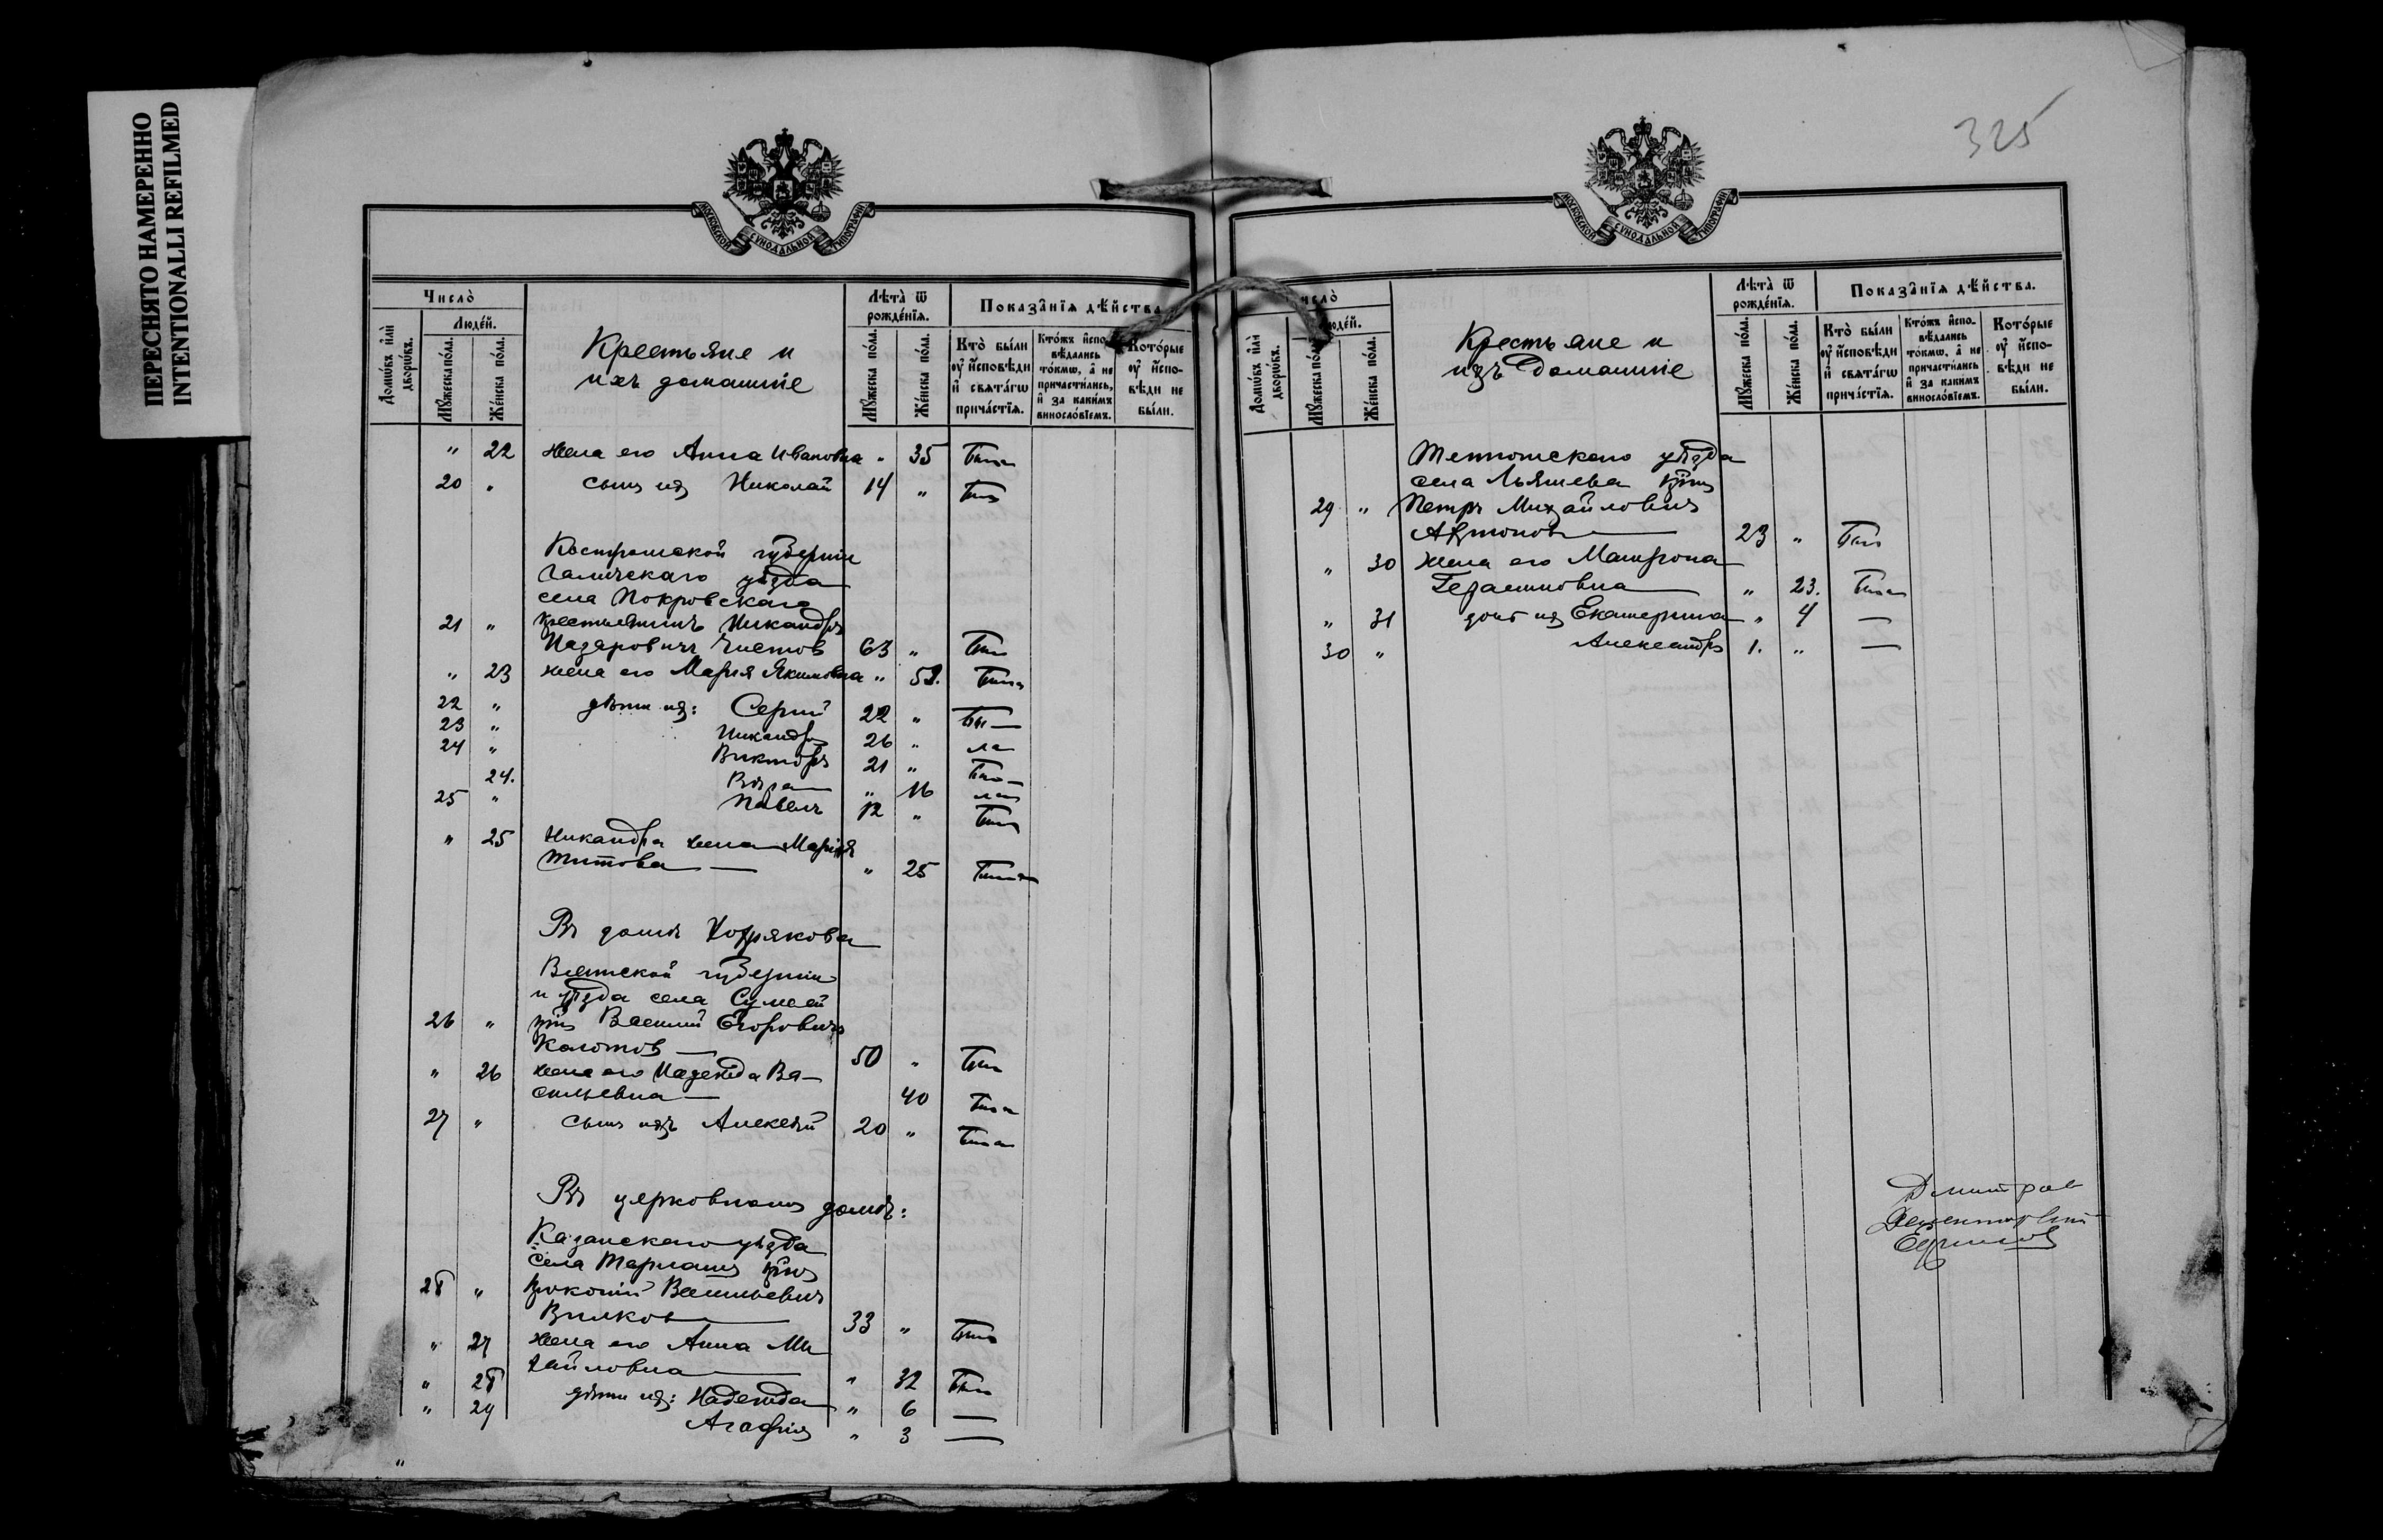 ПЕРЕСНЯТО НАМЕРЕННО
INTENTIONALLI REFILMED
МОСКОВСКОЙ СУНОДАЛЬНОЙ ТИПОГРАФІИ
Число̀
Людей.
Домѡвъ и҆лѝ дворѡвъ.
Мꙋжеска по́ла.
Же́нска по́ла.
Крестьяне и
ихъ домашніе
Лѣта̀ ѿ рожде́нїѧ.
Мꙋжеска по́ла.
Же́нска по́ла.
Показа̑нїѧ дѣ́йства
Кто̀ бы́ли ᲂу҆ и҆сповѣди и҆ свѧта́гѡ прича́стїѧ.
Кто́жъ и҆сповѣдались то́кмѡ, а҆ не причасти́лись, и҆ за каки́мъ винносло́вїемъ.
Кото́рые ᲂу҆ и҆сповѣди не бы́ли.
" 22 жена его Анна Ивановна " 35 Была
20 " сынъ их Николай 14 " Былъ
Костромской губерніи
Галичскаго уѣзда
села Покровскаго
21 " крестьянинъ Никандръ
Назаровичъ Чистов 63 " Былъ
" 23 жена его Марія Якимовна " 52. Была
22 " дѣти их: Сергій 22 " Бы—
23 " Никандръ 26 " ли
24 " Викторъ 21 " Бы—
24. Вѣра " 16 ли
25 " Павелъ 12 " Былъ
" 25 Никандра жена Марія
Титова — " 25 Была
Въ домѣ
Вятской губерніи
и уѣзда села
26 " кр. Василій Егоровичъ
Колотов — 50 " Былъ
" 26 жена его Надежда Ва—
сильевна — 40 Была
27 " сынъ ихъ Алексѣй 20 " Былъ
Въ церковномъ домѣ:
Казанскаго уѣзда
села кр.
28 " Прокопій Васильевичъ
Вилков — 33 " Былъ
" 27 жена его Анна Ми
хайловна — " 32 Была
" 28 дѣти их: Надежда " 6 —
" 29 Агафія " 3 —
"
325
МОСКОВСКОЙ СУНОДАЛЬНОЙ ТИПОГРАФІИ
Число̀
Людей.
Домѡвъ и҆лѝ дворѡвъ.
Мꙋжеска по́ла.
Же́нска по́ла.
Крестьяне и
ихъ домашніе
Лѣта̀ ѿ рожде́нїѧ.
Мꙋжеска по́ла.
Же́нска по́ла.
Показа̑нїѧ дѣ́йства.
Кто̀ бы́ли ᲂу҆ и҆сповѣди и҆ свѧта́гѡ прича́стїѧ.
Кто́жъ и҆сповѣдались то́кмѡ, а҆ не причасти́лись и҆ за каки́мъ винносло́вїемъ.
Кото́рые ᲂу҆ и҆сповѣди не бы́ли.
Тетюшскаго уѣзда
села Льяшева кр.
29 " Петръ Михайловичъ
23 " Былъ
" 30 жена его Матрона
Герасимовна — " 23. Была
" 31 дѣти их Екатерина " 4 —
30 " Александръ 1. " —